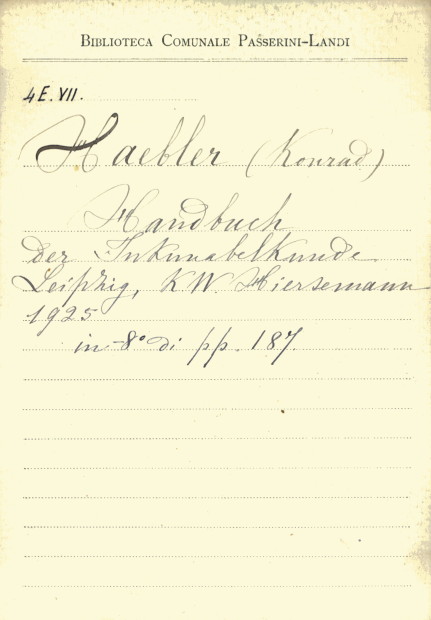 BIBLIOTECA COMUNALE PASSERINI-LANDI
4E. VII.
Haebler (Konrad)
Handbuch
der Inkunabelkunde
Leipzig, KW. Hiersemann
1925
in-8° di pp. 187.